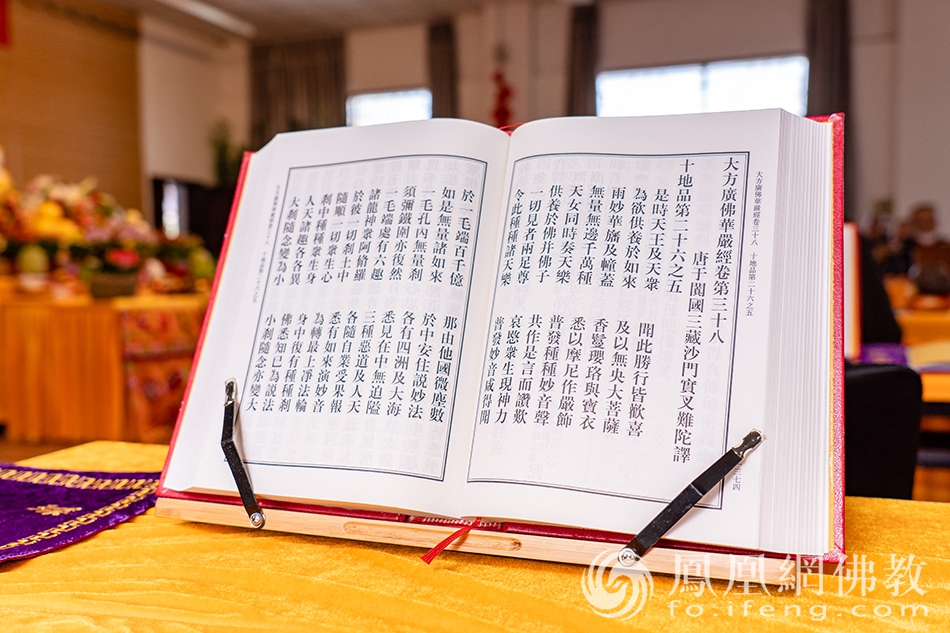 大方廣佛華嚴經卷三十八 十地品第二十六之五
七四
大方廣佛華嚴經卷第三十八
唐于闐國三藏沙門實叉難陀譯
十地品第二十六之五
是時天王及天眾 聞此勝行皆歡喜
為欲供養於如來 及以無央大菩薩
雨妙華旛及幢蓋 香鬘瓔珞與寶衣
無量無邊千萬種 悉以摩尼作嚴飾
天女同時奏天樂 普發種種妙音聲
供養於佛并佛子 共作是言而讚歎
一切見者兩足尊 哀愍眾生現神力
令此種種諸天樂 普發妙音咸得聞
於一毛端百千億 那由他國微塵數
如是無量諸如來 於中安住說妙法
一毛孔內無量剎 各有四洲及大海
須彌鐵圍亦復然 悉見在中無迫隘
一毛端處有六趣 三種惡道及人天
諸龍神眾阿脩羅 各隨自業受果報
於彼一切剎土中 悉有如來演妙音
隨順一切眾生心 為轉最上淨法輪
剎中種種眾生身 身中復有種種剎
人天諸趣各各異 佛悉知已為說法
大剎隨念變為小 小剎隨念亦變大
大方廣佛華嚴經卷三十八 十地品第二十六之五
鳳凰網佛教
fo.ifeng.com